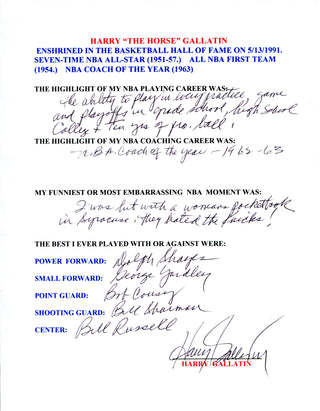 HARRY "THE HORSE" GALLATIN
ENSHRINED IN THE BASKETBALL HALL OF FAME ON 5/13/1991.
SEVEN-TIME NBA ALL-STAR (1951-57.) ALL NBA FIRST TEAM
(1954.) NBA COACH OF THE YEAR (1963)
THE HIGHLIGHT OF MY NBA PLAYING CAREER WAS:
The ability to play in every practice, game
and playoffs in grade school, high School
College + ten yrs of pro. ball!
THE HIGHLIGHT OF MY NBA COACHING CAREER WAS:
N.B.A. Coach of the year - 1962-63
MY FUNNIEST OR MOST EMBARRASSING NBA MOMENT WAS:
I was hit with a womans pocketbook
in Syracuse. They hated the Knicks!
THE BEST I EVER PLAYED WITH OR AGAINST WERE:
POWER FORWARD: Dolph Shayes
SMALL FORWARD: George Yardley
POINT GUARD: Bob Cousy
SHOOTING GUARD: Bill Sharman
CENTER: Bill Russell
Harry Gallatin
HARRY GALLATIN